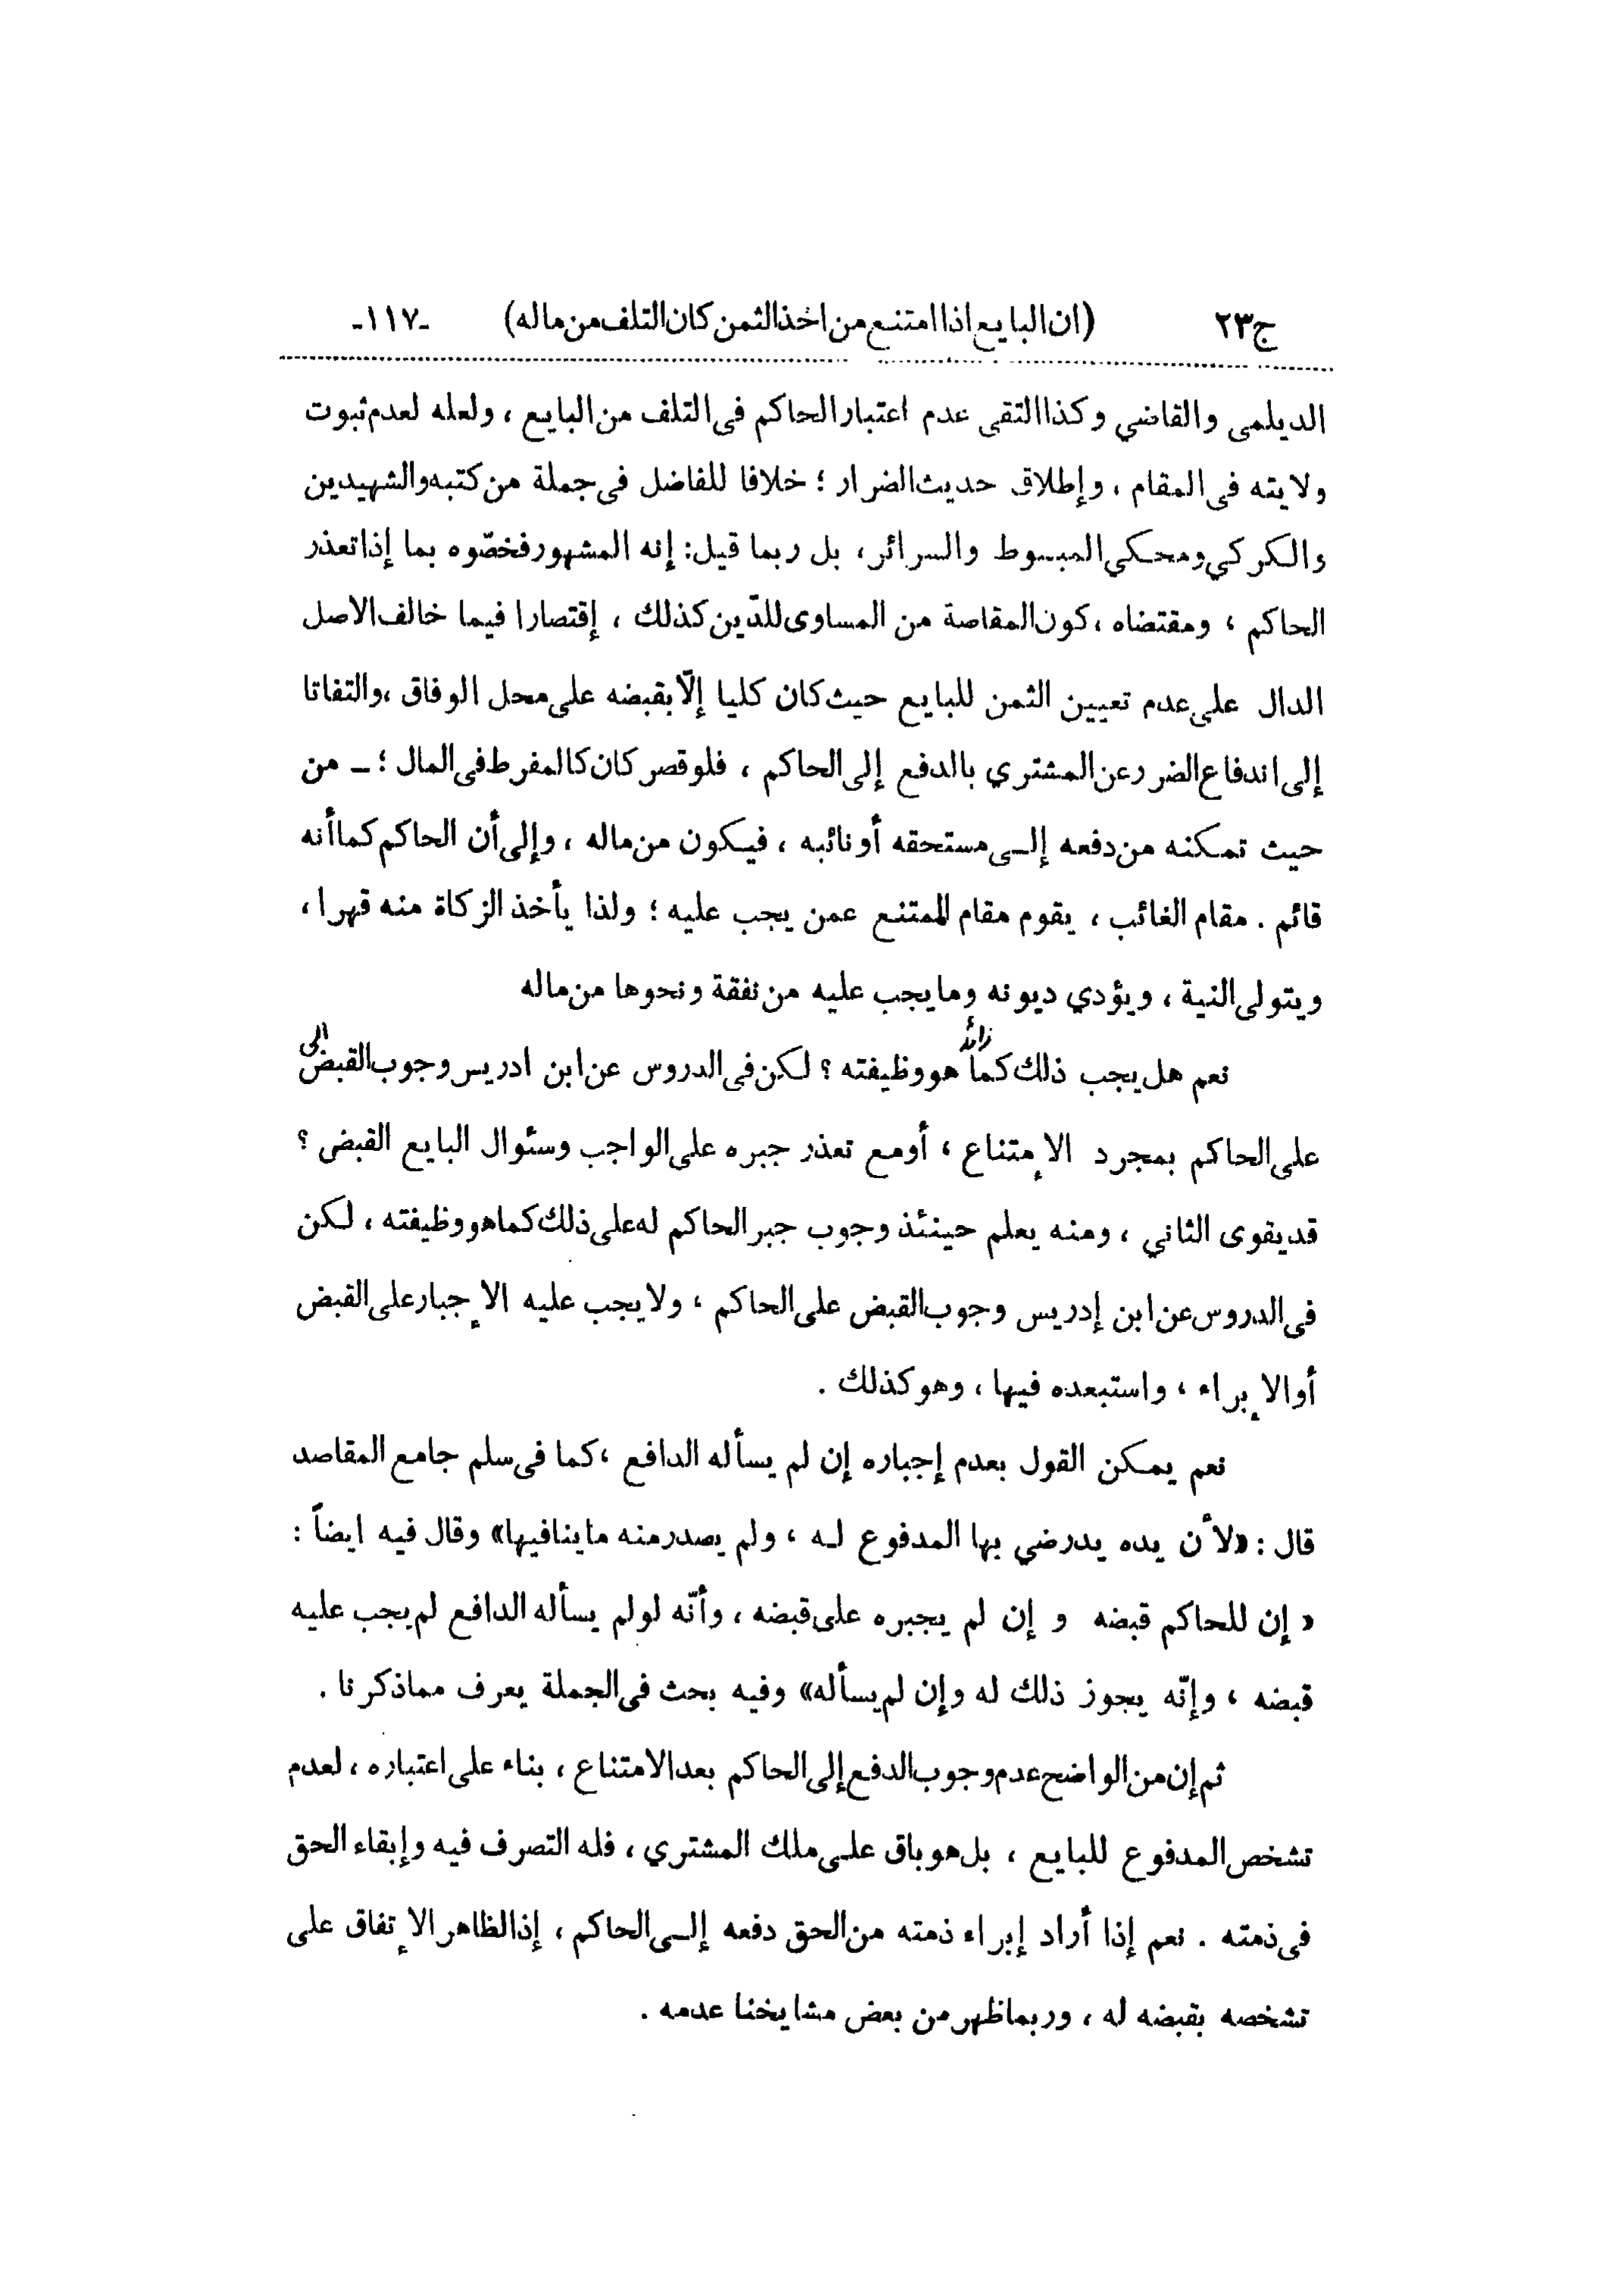 ج٢٣ (ان البايع اذا امتنع من اخذ الثمن كان التلف من ماله) -١١٧-
الديلمى والقاضي وكذا التقى عدم اعتبار الحاكم فى التلف من البايع ، ولعله لعدم ثبوت
ولايته فى المقام ، وإطلاق حديث الضرار ؛ خلافا للفاضل فى جملة من كتبه والشهيدين
والكركي ومحكي المبسوط والسرائر، بل ربما قيل: إنه المشهور فخصّوه بما إذا تعذر
الحاكم ، ومقتضاه ،كون المقاصة من المساوى للدّين كذلك ، إقتصارا فيما خالف الاصل
الدال على عدم تعيين الثمن للبايع حيث كان كليا إلّا بقبضه على محل الوفاق ،والتفاتا
إلى اندفاع الضرر عن المشتري بالدفع إلى الحاكم ، فلو قصر كان كالمفرط فى المال ؛ ـ من
حيث تمكنه من دفعه إلى مستحقه أو نائبه ، فيكون من ماله ، وإلى أن الحاكم كما أنه
قائم . مقام الغائب ، يقوم مقام الممتنع عمن يجب عليه ؛ ولذا يأخذ الزكاة منه قهرا ،
ويتولى النية ، ويؤدي ديونه وما يجب عليه من نفقة ونحوها من ماله
زائد الى
نعم هل يجب ذلك كما هو وظيفته ؟ لكن فى الدروس عن ابن ادريس وجوب القبض
على الحاكم بمجرد الإمتناع ، أو مع تعذر جبره على الواجب وسئوال البايع القبض ؟
قد يقوى الثاني ، ومنه يعلم حينئذ وجوب جبر الحاكم له على ذلك كما هو وظيفته ، لكن
فى الدروس عن ابن إدريس وجوب القبض على الحاكم ، ولا يجب عليه الإجبار على القبض
أو الإبراء ، واستبعده فيها ، وهو كذلك .
نعم يمكن القول بعدم إجباره إن لم يسأله الدافع ،كما فى سلم جامع المقاصد
قال : «لأن يده يد رضي بها المدفوع له ، ولم يصدر منه ما ينافيها» وقال فيه ايضاً :
« إن للحاكم قبضه و إن لم يجبره على قبضه ، وأنّه لو لم يسأله الدافع لم يجب عليه
قبضه ، وإنّه يجوز ذلك له وإن لم يسأله» وفيه بحث فى الجملة يعرف مما ذكرنا .
ثم إن من الواضح عدم وجوب الدفع إلى الحاكم بعد الامتناع ، بناء على اعتباره ، لعدم
تشخص المدفوع للبايع ، بل هو باق على ملك المشتري ، فله التصرف فيه وإبقاء الحق
فى ذمته . نعم إذا أراد إبراء ذمته من الحق دفعه إلى الحاكم ، إذ الظاهر الإتفاق على
تشخصه بقبضه له ، وربما ظهر من بعض مشايخنا عدمه .